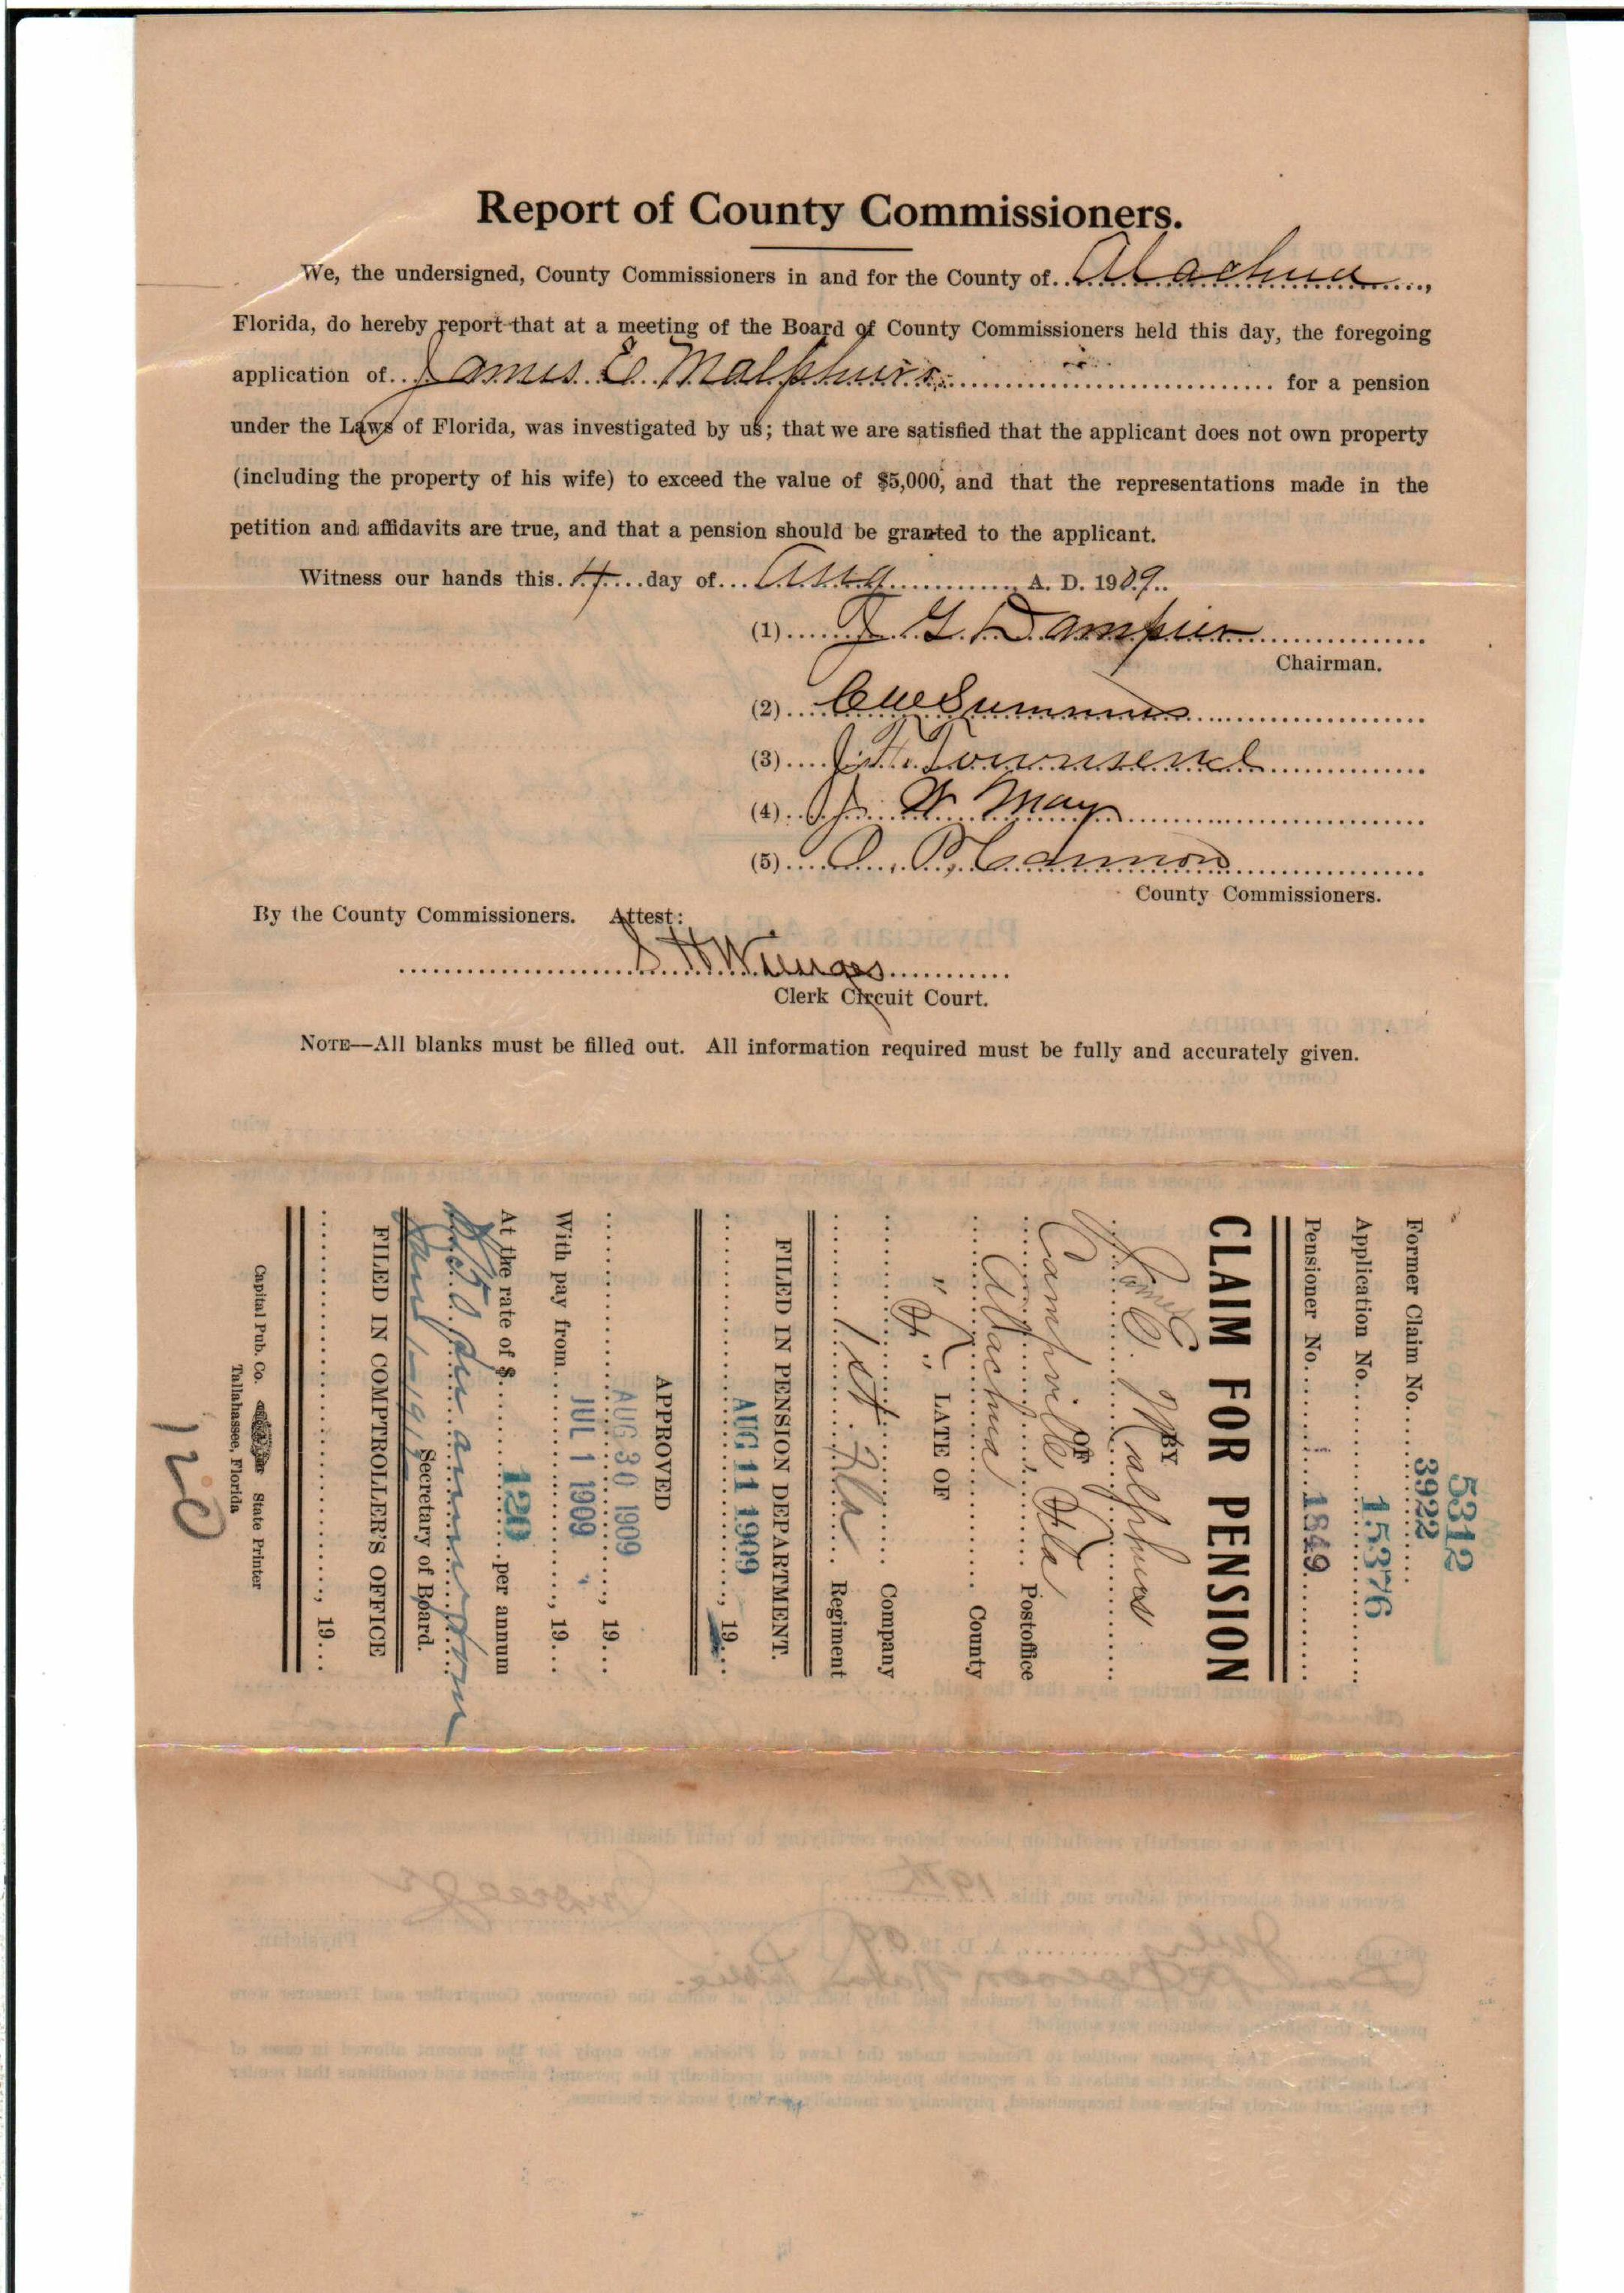 Report of County Commissioners.
We, the undersigned, County Commissioners in and for the County of Alachua,
Florida, do hereby report that at a meeting of the Board of County Commissioners held this day, the foregoing
application of James E Malphurs for a pension
under the Laws of Florida, was investigated by us; that we are satisfied that the applicant does not own property
(including the property of his wife) to exceed the value of $5,000, and that the representations made in the
petition and affidavits are true, and that a pension should be granted to the applicant.
Witness our hands this 4 day of Aug A. D. 1909
(1) J G. Dampier
Chairman.
(2) C W Summers
(3) J. H. Townsend
(4) J. W May
(5) O. P. Cannon
County Commissioners.
By the County Commissioners. Attest:
S H Wienges
Clerk Circuit Court.
NOTE—All blanks must be filled out. All information required must be fully and accurately given.
5312
Former Claim No. 3922
Application No. 15376
Pensioner No. 1849
CLAIM FOR PENSION
BY
James E. Malphurs
OF
Campville Fla Postoffice
Alachua County
LATE OF
" K " Company
1st. Fla Regiment
FILED IN PENSION DEPARTMENT.
AUG 11 1909, 19
APPROVED
AUG 30 1909, 19
With pay from JUL 1 1909, 19
At the rate of $ 120 per annum
$150 per annum from
Jany 1-1912
Secretary of Board.
FILED IN COMPTROLLER'S OFFICE
, 19
Capital Pub. Co. State Printer
Tallahassee, Florida
120